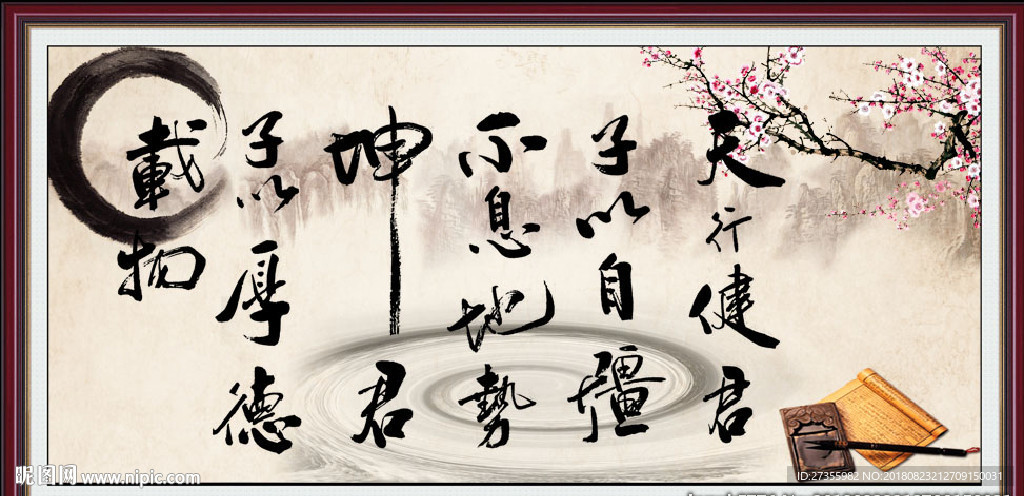 天行健君
子以自疆
不息地勢
坤君
子以厚德
載物
昵图网 www.nipic.com
ID:27355982 NO:20180823212709150031